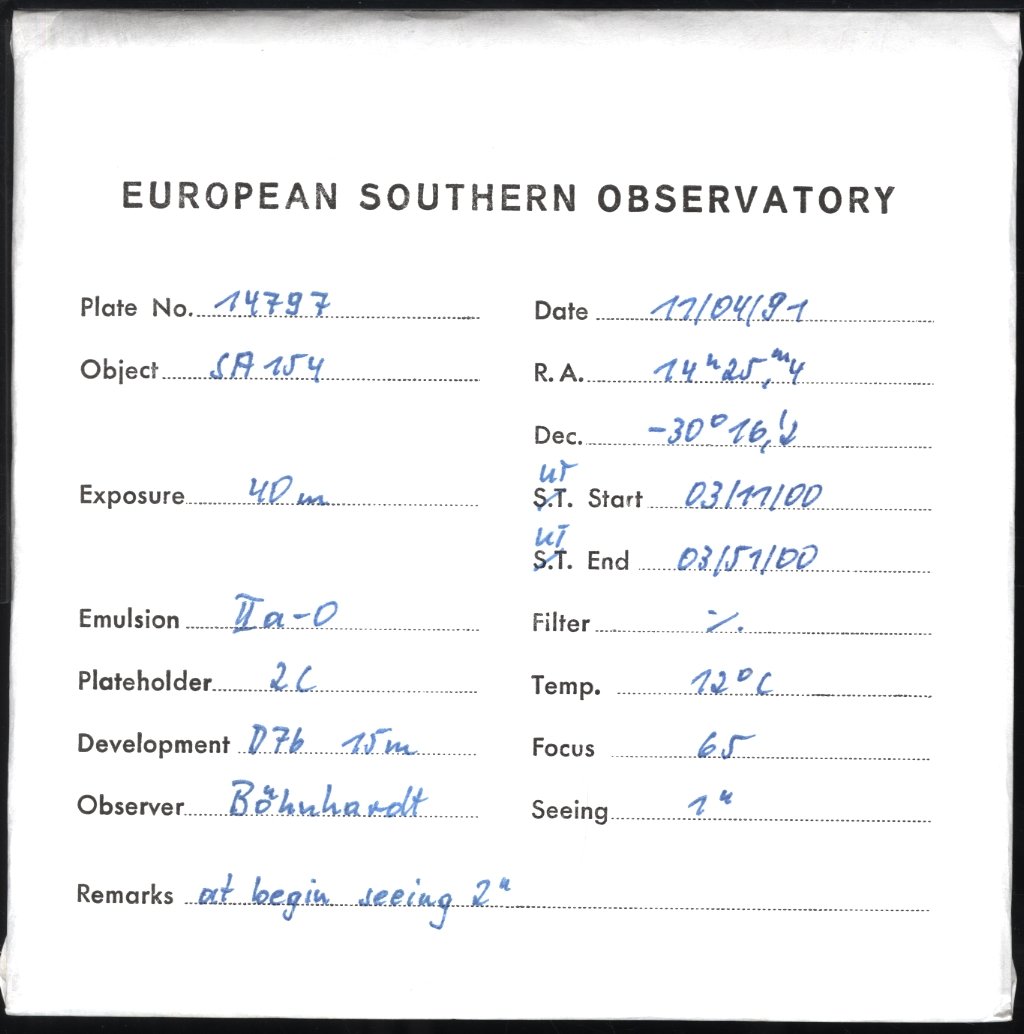 EUROPEAN SOUTHERN OBSERVATORY
Plate No. 14797 Date 11/04/91
Object SA 154 R.A. 14h 25,m4
Dec. -30° 16,'2
Exposure 40 m UT S.T. Start 03/11/00
UT S.T. End 03/51/00
Emulsion IIa-O Filter ./.
Plateholder 2C Temp. 12°C
Development D76 15m Focus 65
Observer Böhnhardt Seeing 1"
Remarks at begin seeing 2"